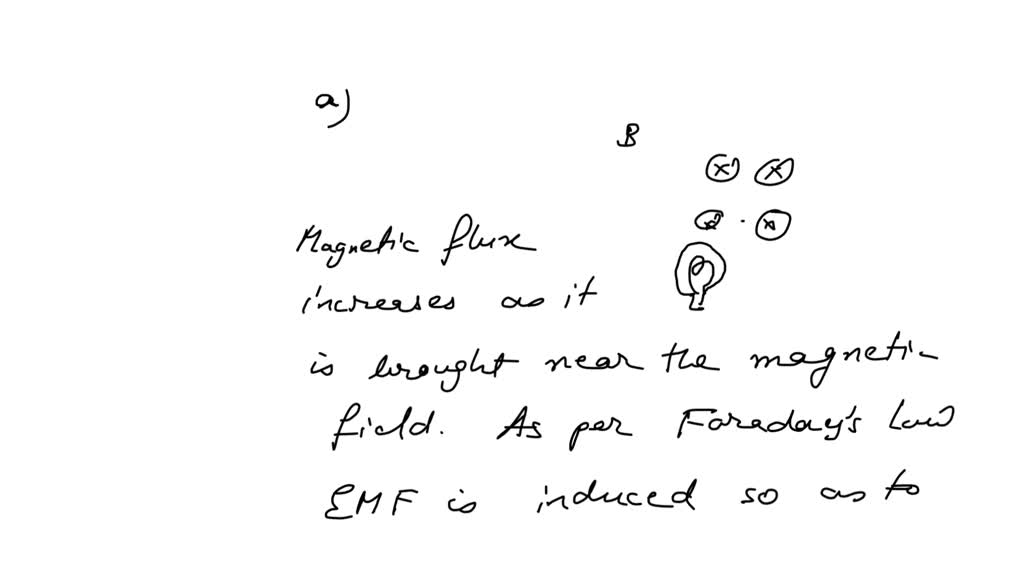 a)
B
Magnetic flux
increases as it
is brought near the magnetic
field. As per Faraday's Law
EMF is induced so as to